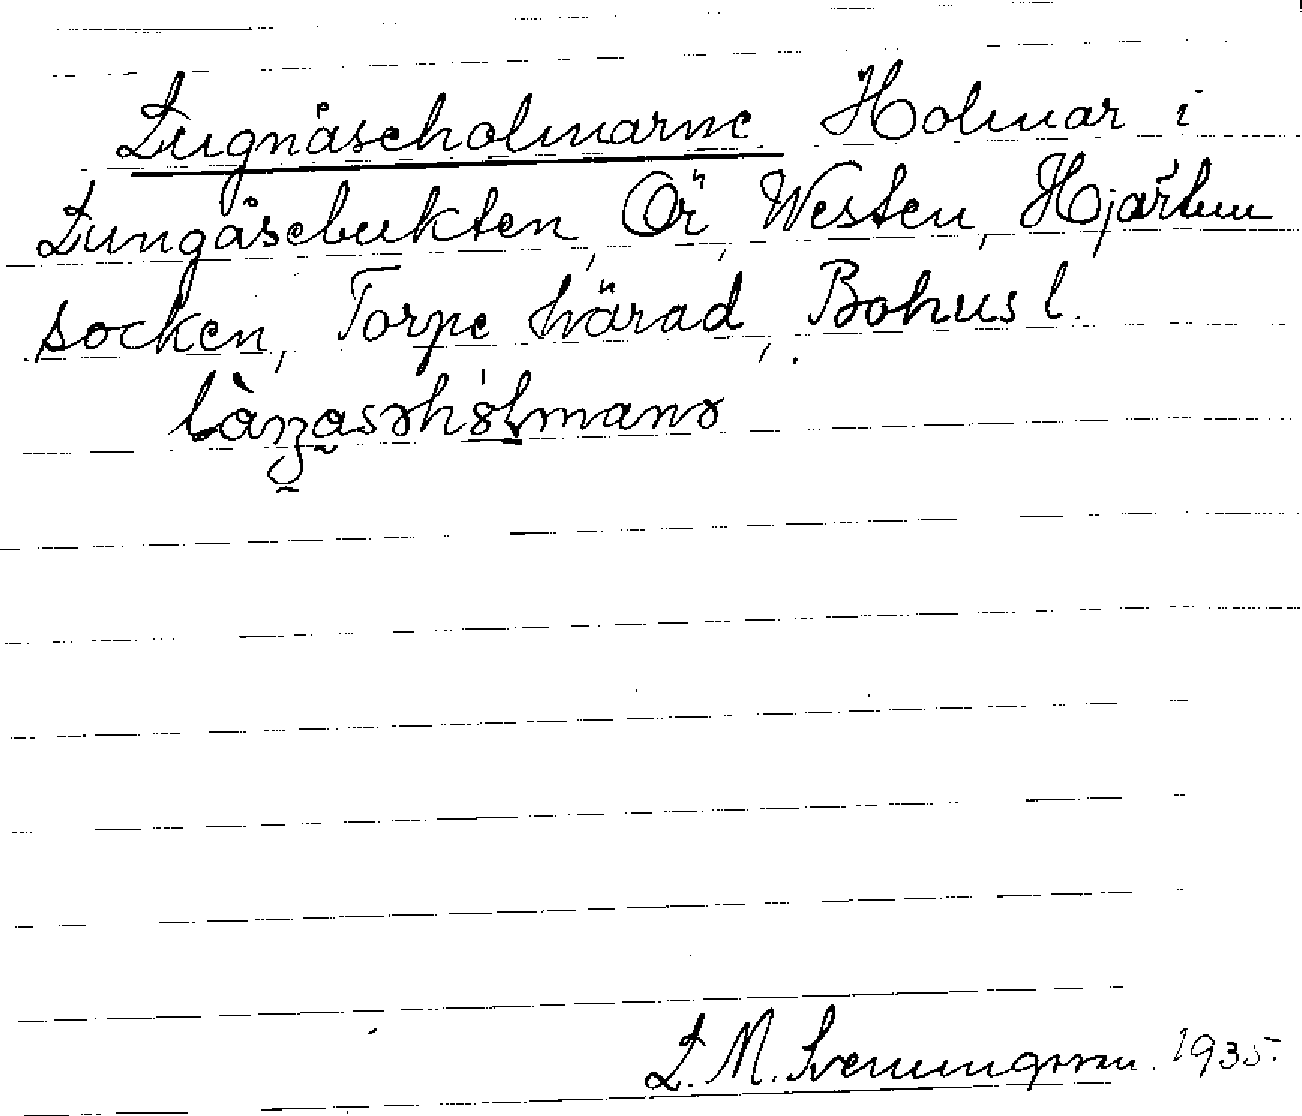 Lugnåseholmarne Holmar i
Lungåsebukten, Ör, Westen, Hjärtum
socken, Torpe härad, Bohusl.
L. M. Svenungsson. 1935.